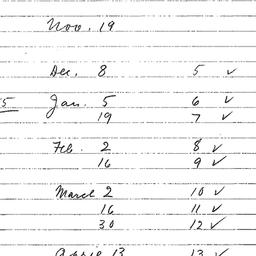 Nov. 19
Dec. 8 5 ✓
5 Jan. 5 6 ✓
19 7 ✓
Feb. 2 8 ✓
16 9 ✓
March 2 10 ✓
16 11 ✓
30 12 ✓
April 13 13 ✓